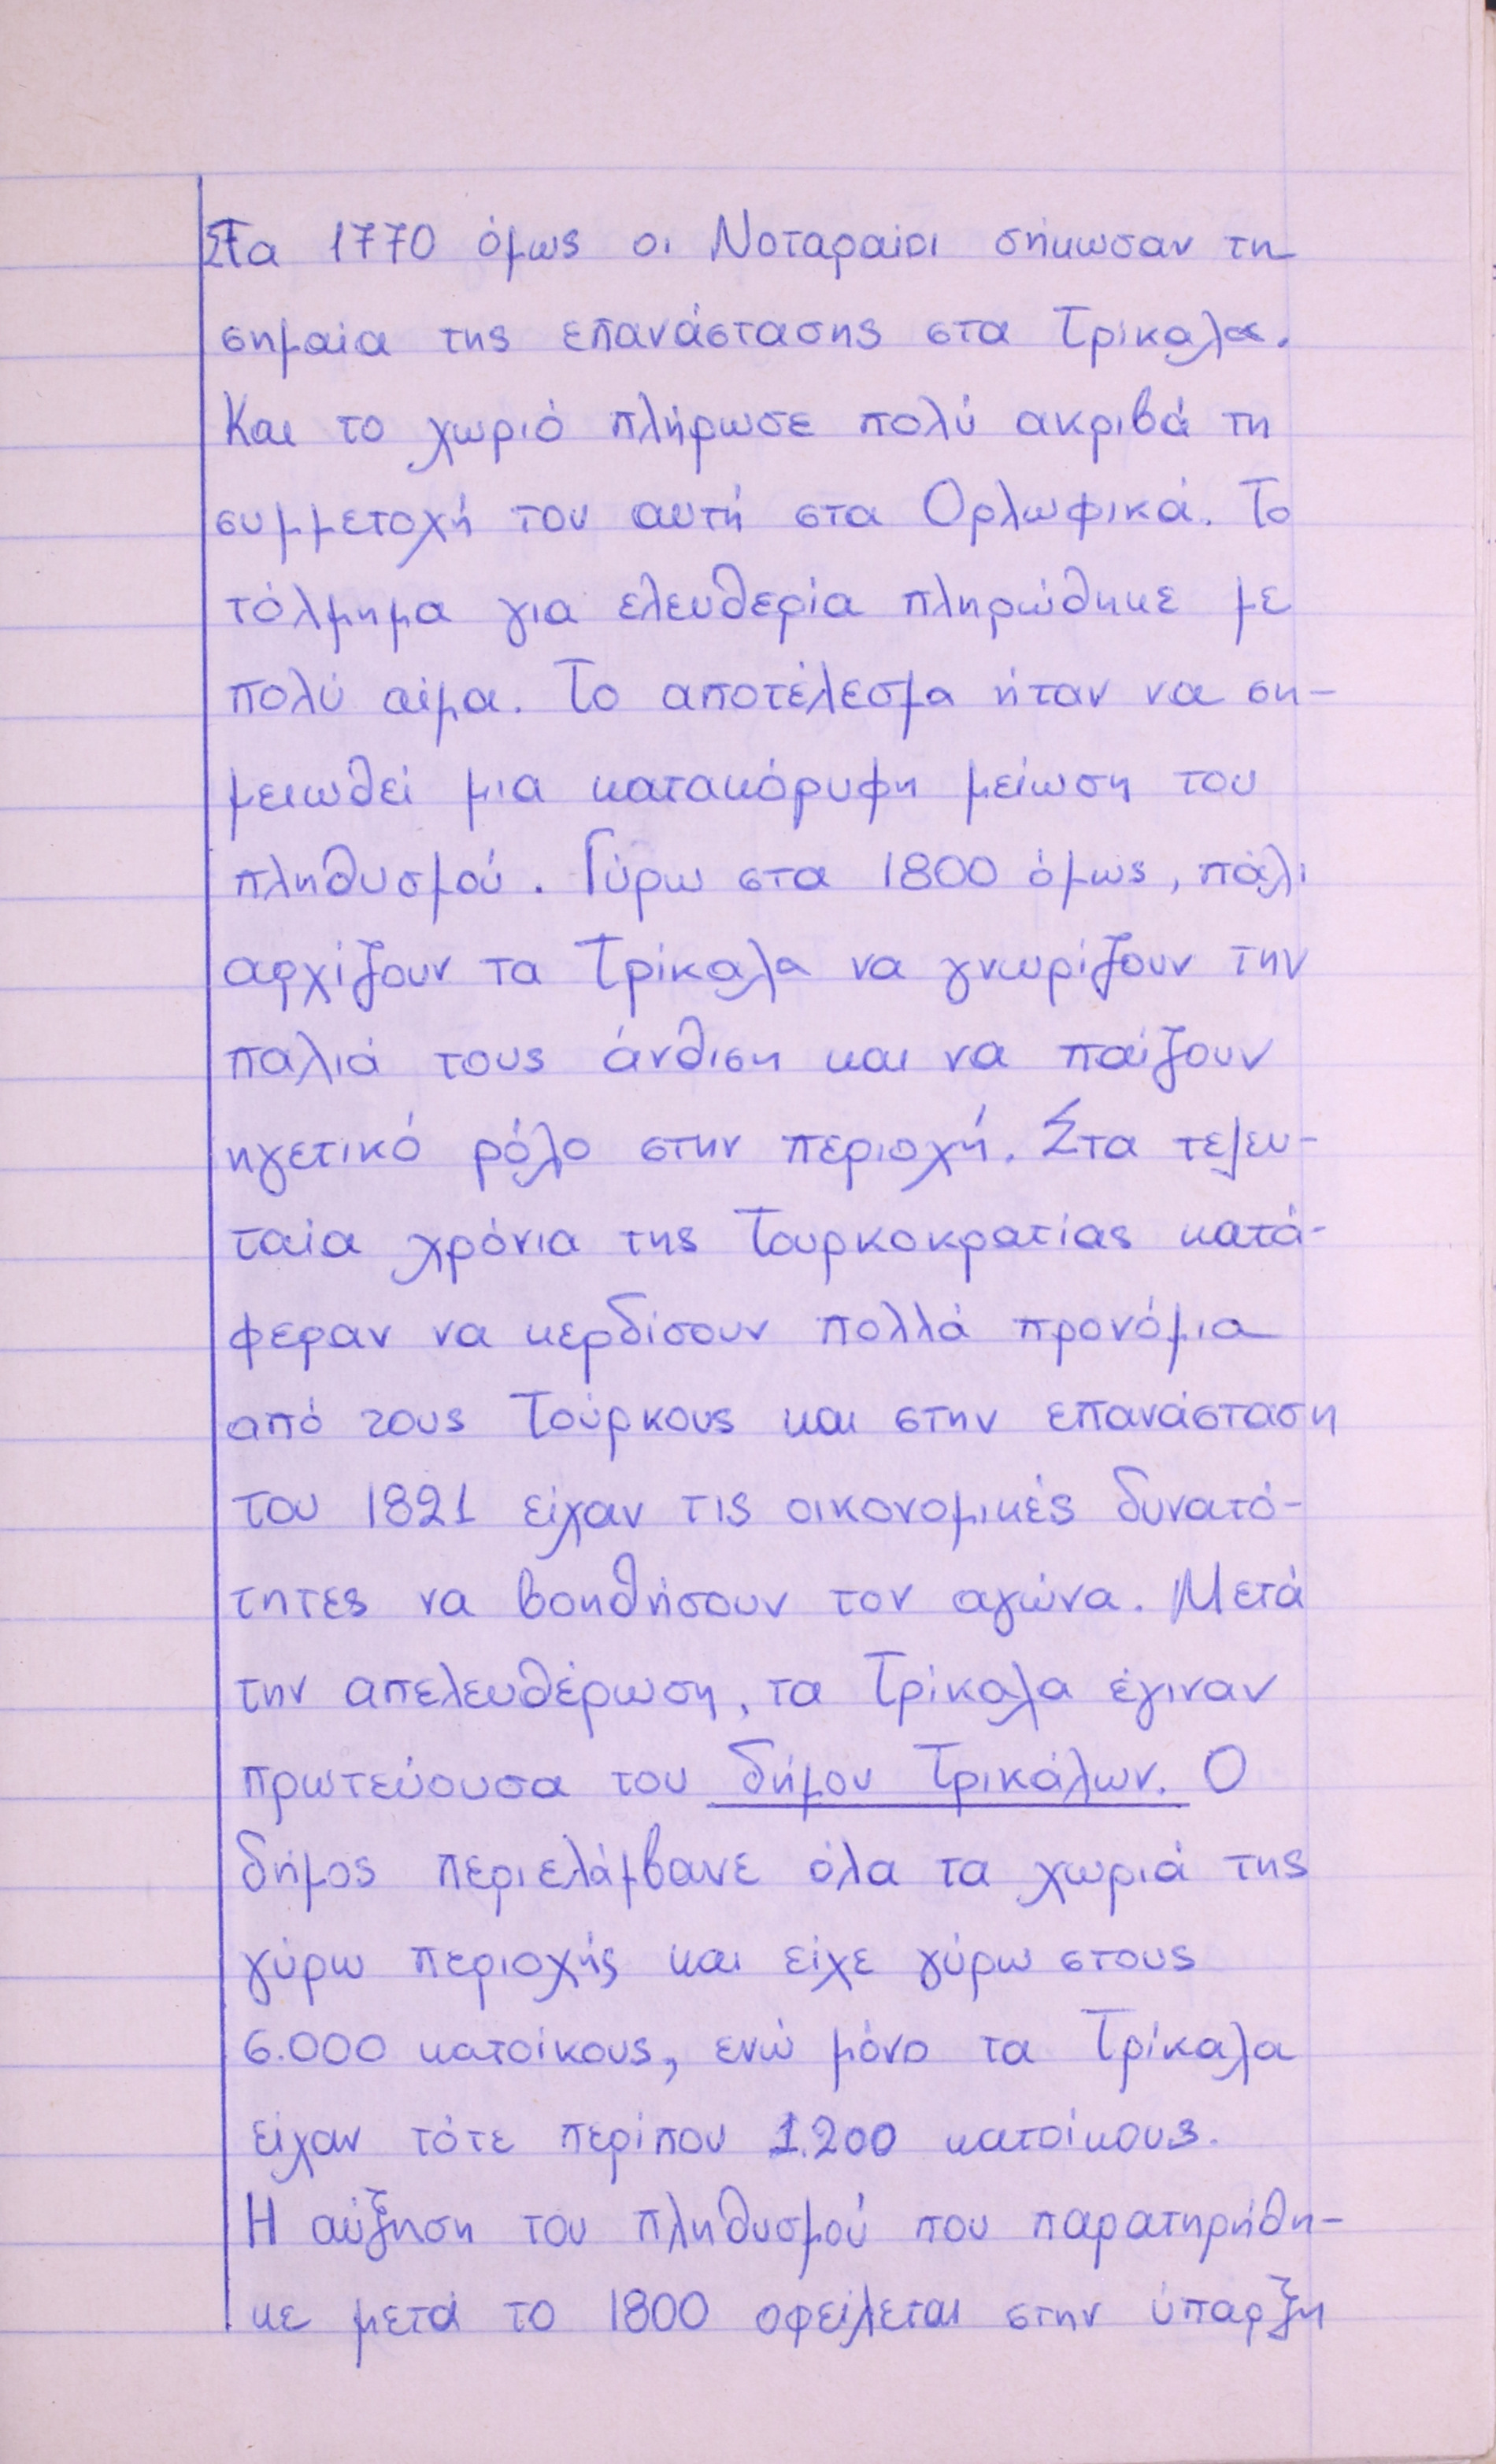 Στα 1770 όμως οι Νοταραίοι σήκωσαν τη
σημαία της επανάστασης στα Τρίκαλα.
Και το χωριό πλήρωσε πολύ ακριβά τη
συμμετοχή του αυτή στα Ορλωφικά. Το
τόλμημα για ελευθερία πληρώθηκε με
πολύ αίμα. Το αποτέλεσμα ήταν να ση-
μειωθεί μια κατακόρυφη μείωση του
πληθυσμού. Γύρω στα 1800 όμως, πάλι
αρχίζουν τα Τρίκαλα να γνωρίζουν την
παλιά τους άνθιση και να παίζουν
ηγετικό ρόλο στην περιοχή. Στα τελευ-
ταία χρόνια της Τουρκοκρατίας κατά-
φεραν να κερδίσουν πολλά προνόμια
από τους Τούρκους και στην επανάσταση
του 1821 είχαν τις οικονομικές δυνατό-
τητες να βοηθήσουν τον αγώνα. Μετά
την απελευθέρωση, τα Τρίκαλα έγιναν
πρωτεύουσα του δήμου Τρικάλων. Ο
δήμος περιελάμβανε όλα τα χωριά της
γύρω περιοχής και είχε γύρω στους
6.000 κατοίκους, ενώ μόνο τα Τρίκαλα
είχαν τότε περίπου 1.200 κατοίκους.
Η αύξηση του πληθυσμού που παρατηρήθη-
κε μετά το 1800 οφείλεται στην ύπαρξη